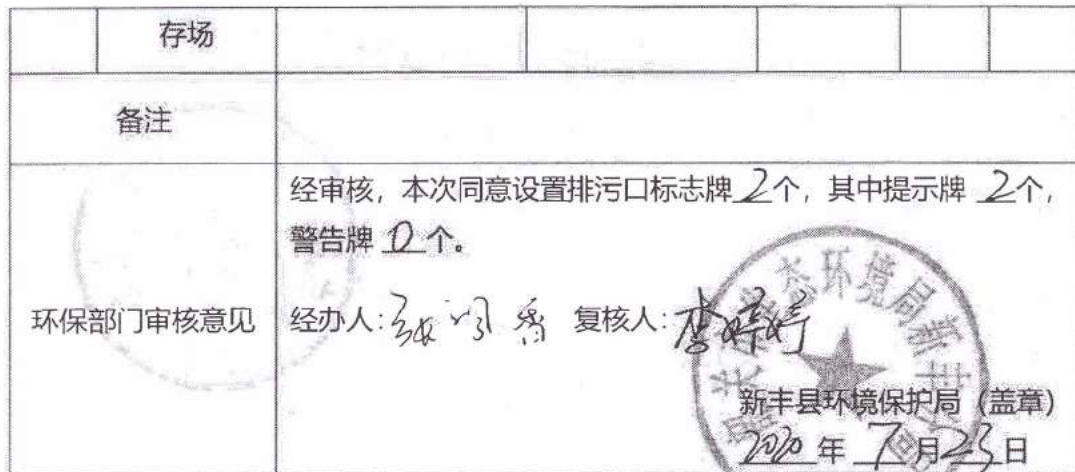 存场
备注
环保部门审核意见
经审核，本次同意设置排污口标志牌 2个，其中提示牌 2个，
警告牌 0 个。
经办人: 复核人: 李婷婷
生态环境局新丰
新丰县环境保护局（盖章）
2020 年 7 月 23 日